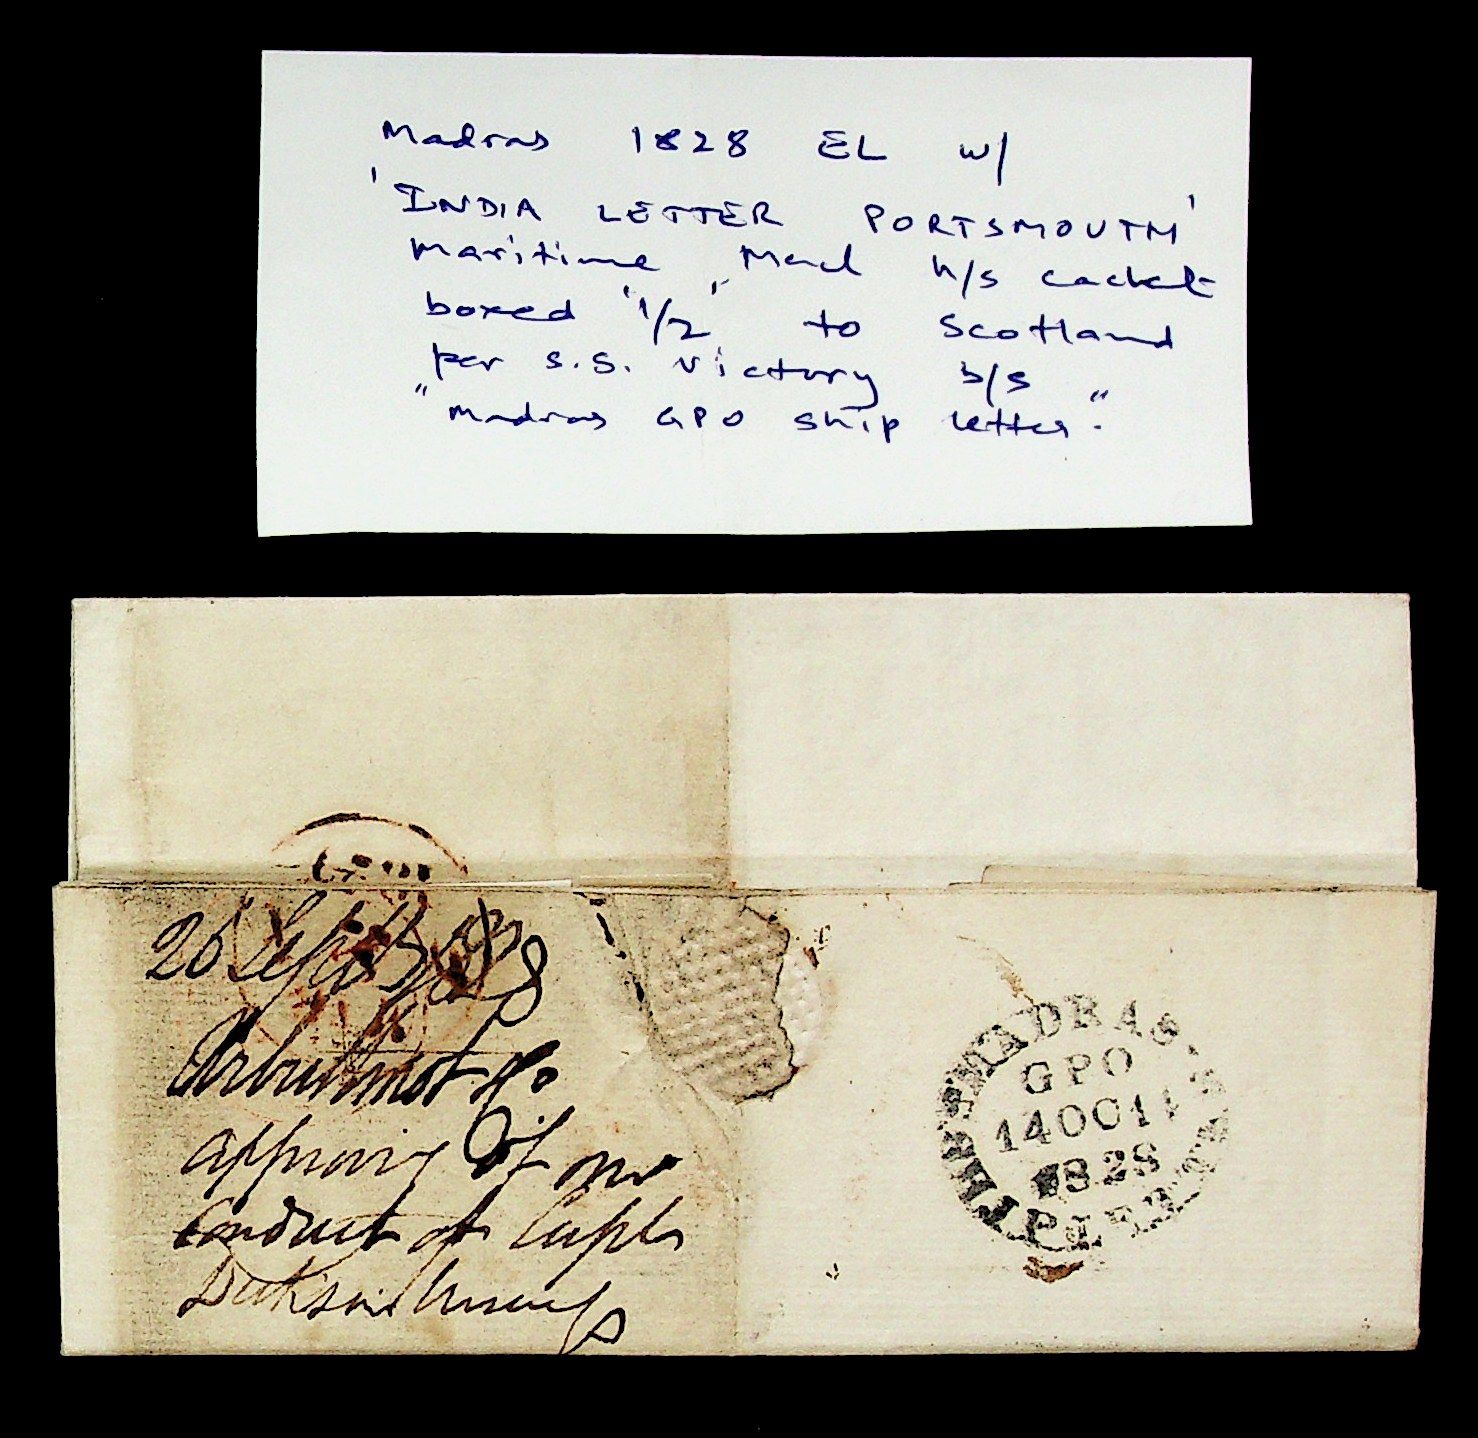 Madras 1828 EL w/
'INDIA LETTER PORTSMOUTH'
Maritime Mail h/s cachet
boxed "1/2" to Scotland
per S.S. Victory b/s
"Madras GPO Ship Letter".
26 Sept 1828
Arbuthnot & Co
approving of our
Conduct of
Dickson
MADRAS
GPO
14 OC 14
1828
SHIP LETTER